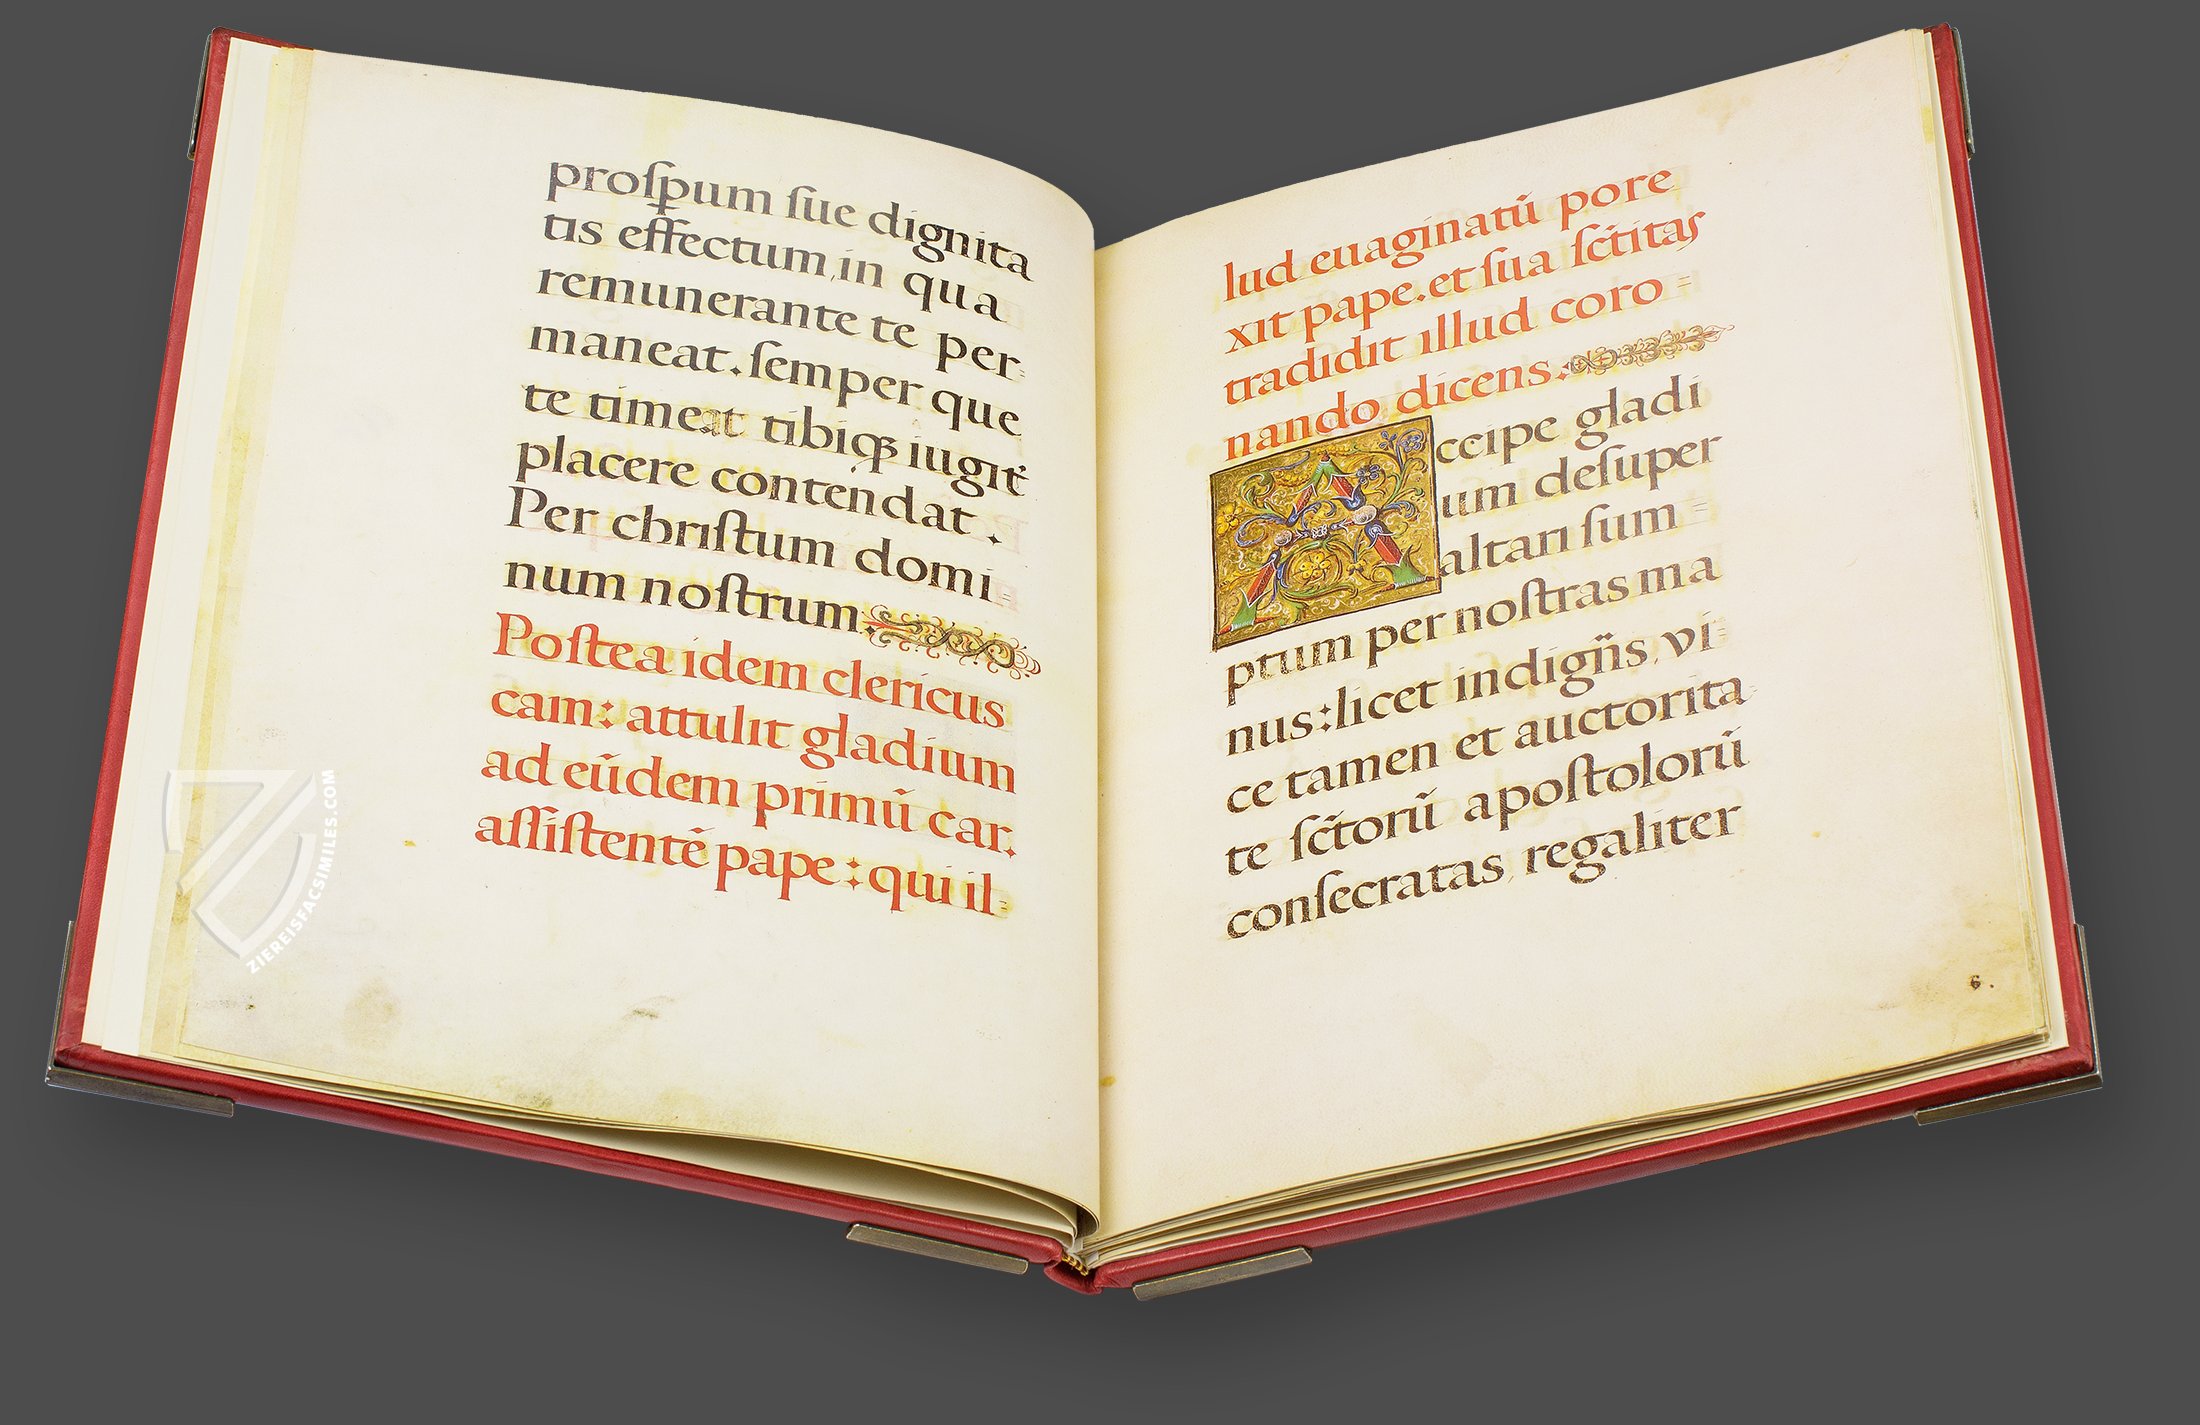 proſpum ſue dignita
tis effectum, in qua
remunerante te per=
maneat. ſemper que
te timeat tibiqꝫ iugit̉
placere contendat.
Per chriſtum domi=
num noſtrum:
Poſtea idem clericus
cam: attulit gladium
ad eūdem primū car.
aſſiſtentē pape: qui il=
lud euaginatū pore
xit pape. et ſua ſc̄titas
tradidit illud coro=
nando dicens:
Accipe gladi
um deſuper
altari ſum=
ptum per noſtras ma
nus: licet indignis, vi=
ce tamen et auctorita
te ſc̄torū apoſtolorū
conſecratas, regaliter
6.
ZIEREISFACSIMILES.COM